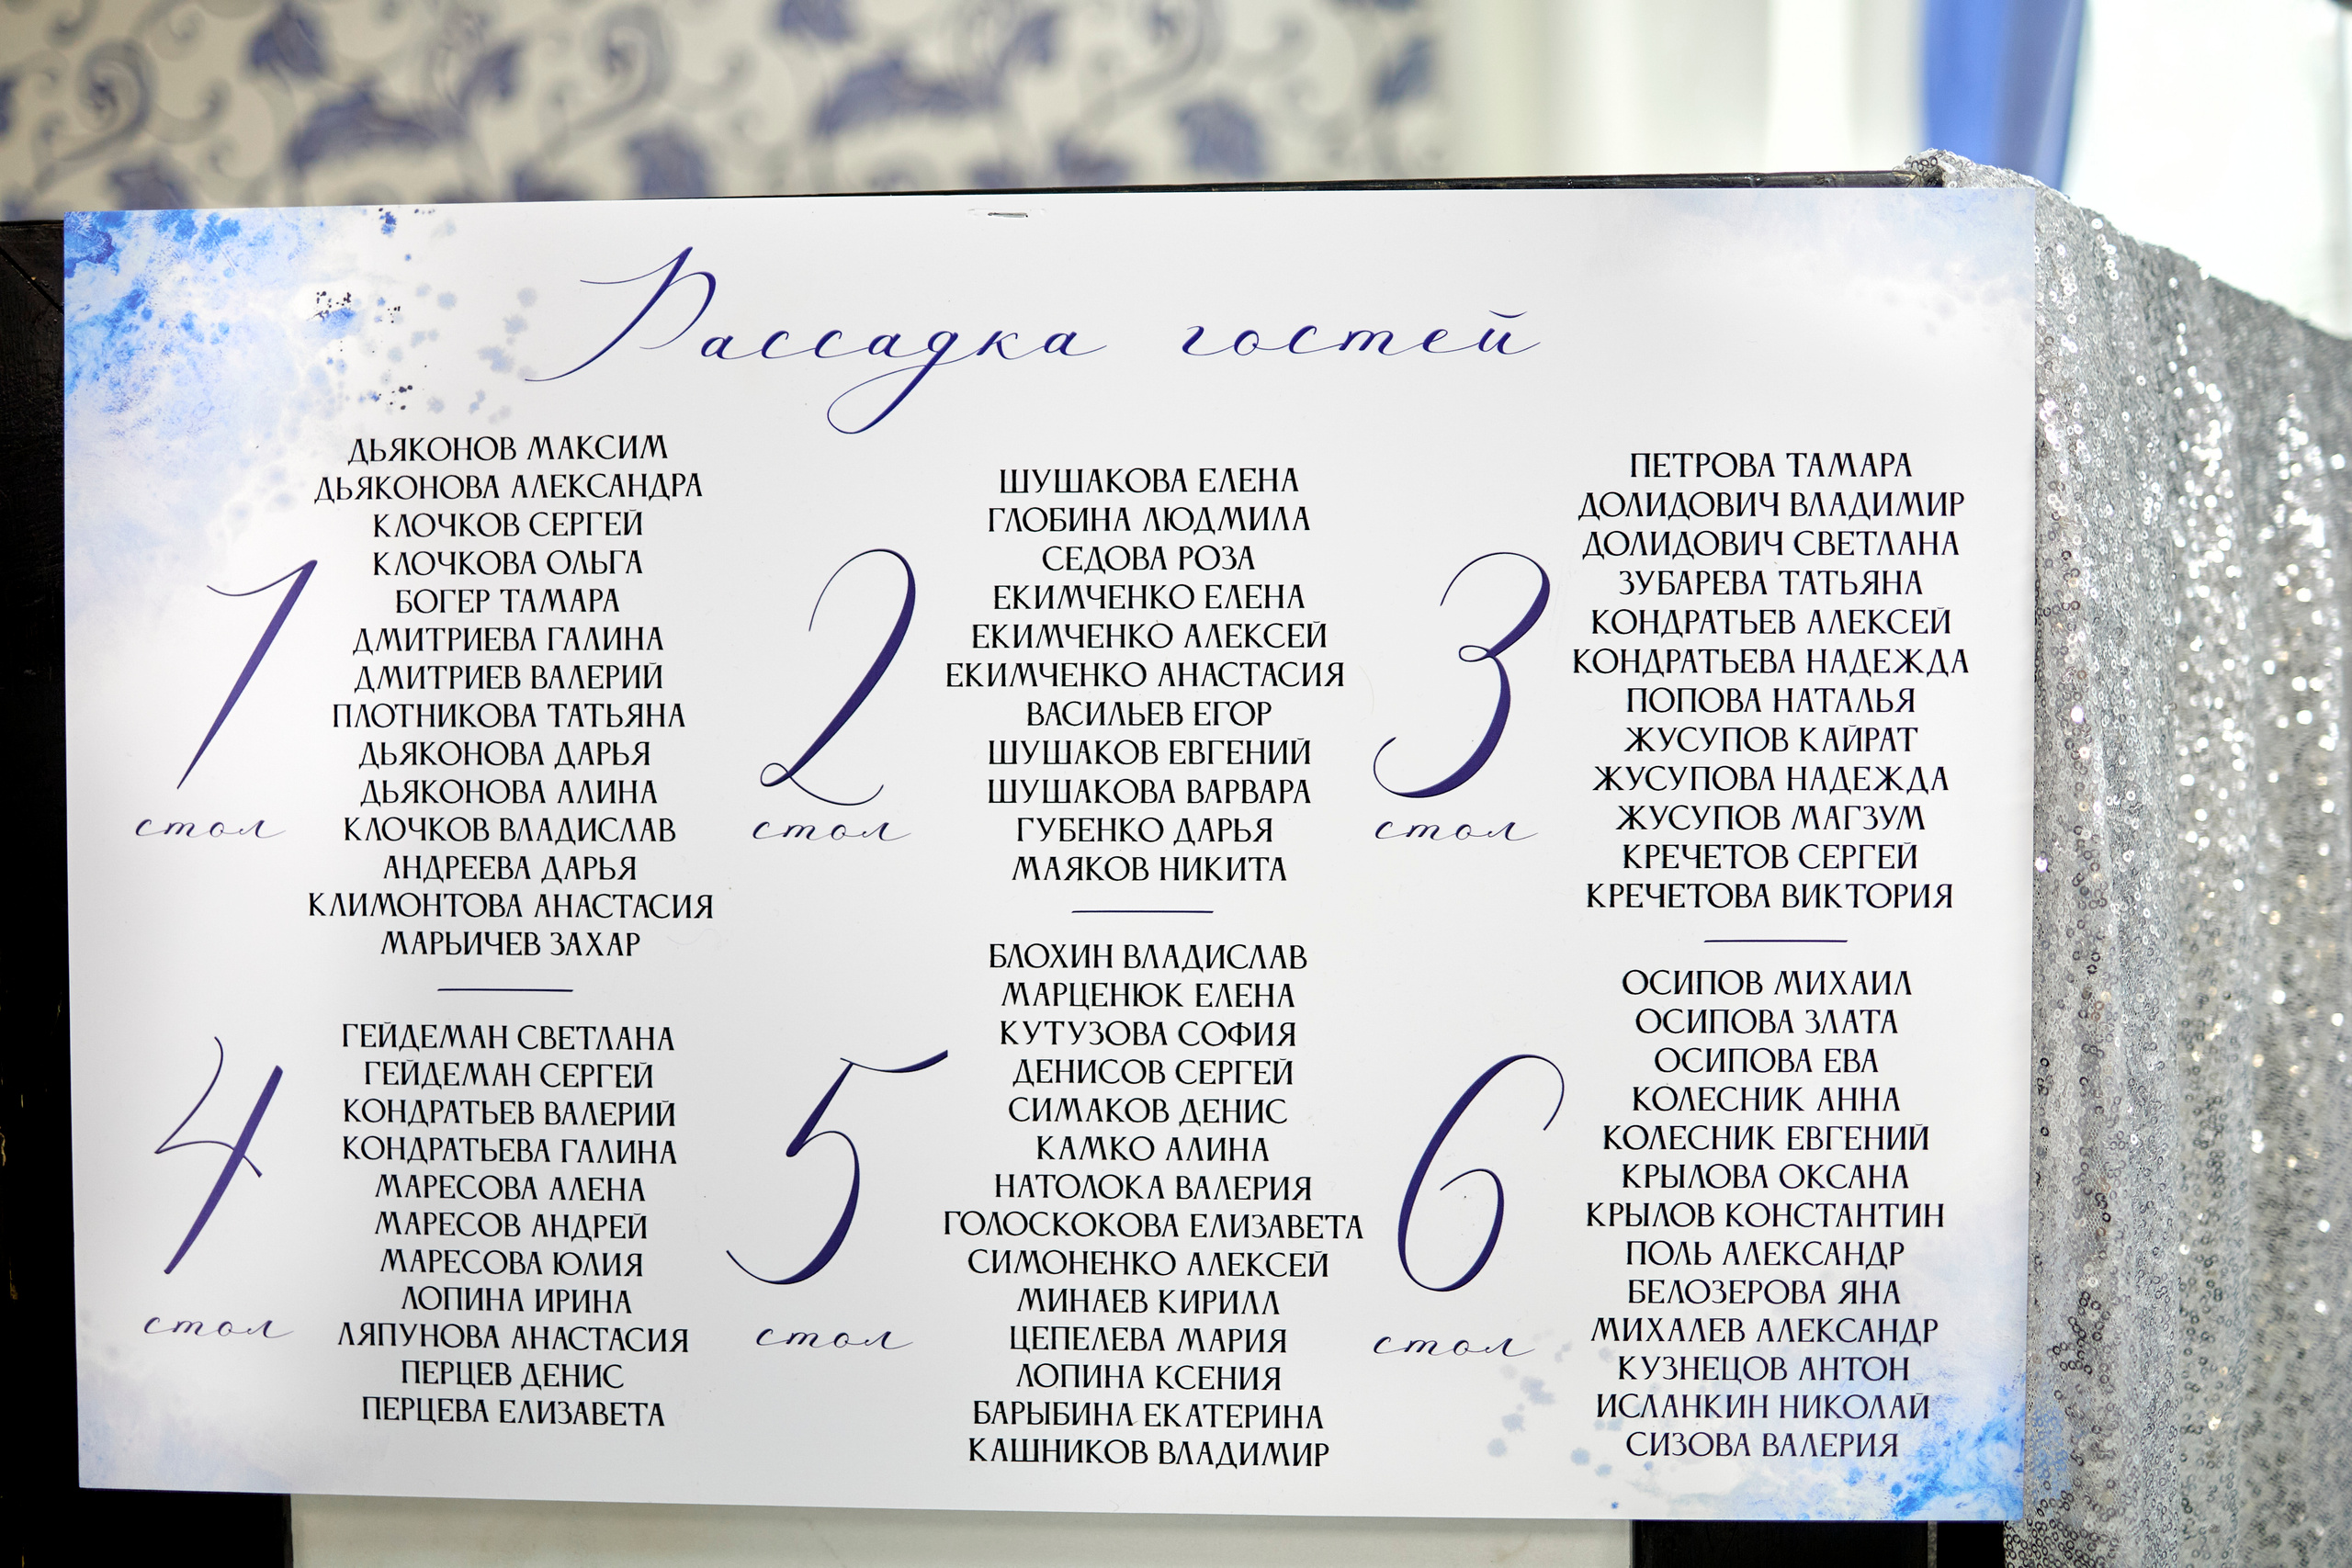 Рассадка гостей
1
стол
ДЬЯКОНОВ МАКСИМ
ДЬЯКОНОВА АЛЕКСАНДРА
КЛОЧКОВ СЕРГЕЙ
КЛОЧКОВА ОЛЬГА
БОГЕР ТАМАРА
ДМИТРИЕВА ГАЛИНА
ДМИТРИЕВ ВАЛЕРИЙ
ПЛОТНИКОВА ТАТЬЯНА
ДЬЯКОНОВА ДАРЬЯ
ДЬЯКОНОВА АЛИНА
КЛОЧКОВ ВЛАДИСЛАВ
АНДРЕЕВА ДАРЬЯ
КЛИМОНТОВА АНАСТАСИЯ
МАРЬИЧЕВ ЗАХАР
2
стол
ШУШАКОВА ЕЛЕНА
ГЛОБИНА ЛЮДМИЛА
СЕДОВА РОЗА
ЕКИМЧЕНКО ЕЛЕНА
ЕКИМЧЕНКО АЛЕКСЕЙ
ЕКИМЧЕНКО АНАСТАСИЯ
ВАСИЛЬЕВ ЕГОР
ШУШАКОВ ЕВГЕНИЙ
ШУШАКОВА ВАРВАРА
ГУБЕНКО ДАРЬЯ
МАЯКОВ НИКИТА
3
стол
ПЕТРОВА ТАМАРА
ДОЛИДОВИЧ ВЛАДИМИР
ДОЛИДОВИЧ СВЕТЛАНА
ЗУБАРЕВА ТАТЬЯНА
КОНДРАТЬЕВ АЛЕКСЕЙ
КОНДРАТЬЕВА НАДЕЖДА
ПОПОВА НАТАЛЬЯ
ЖУСУПОВ КАЙРАТ
ЖУСУПОВА НАДЕЖДА
ЖУСУПОВ МАГЗУМ
КРЕЧЕТОВ СЕРГЕЙ
КРЕЧЕТОВА ВИКТОРИЯ
4
стол
ГЕЙДЕМАН СВЕТЛАНА
ГЕЙДЕМАН СЕРГЕЙ
КОНДРАТЬЕВ ВАЛЕРИЙ
КОНДРАТЬЕВА ГАЛИНА
МАРЕСОВА АЛЕНА
МАРЕСОВ АНДРЕЙ
МАРЕСОВА ЮЛИЯ
ЛОПИНА ИРИНА
ЛЯПУНОВА АНАСТАСИЯ
ПЕРЦЕВ ДЕНИС
ПЕРЦЕВА ЕЛИЗАВЕТА
5
стол
БЛОХИН ВЛАДИСЛАВ
МАРЦЕНЮК ЕЛЕНА
КУТУЗОВА СОФИЯ
ДЕНИСОВ СЕРГЕЙ
СИМАКОВ ДЕНИС
КАМКО АЛИНА
НАТОЛОКА ВАЛЕРИЯ
ГОЛОСКОКОВА ЕЛИЗАВЕТА
СИМОНЕНКО АЛЕКСЕЙ
МИНАЕВ КИРИЛЛ
ЦЕПЕЛЕВА МАРИЯ
ЛОПИНА КСЕНИЯ
БАРЫБИНА ЕКАТЕРИНА
КАШНИКОВ ВЛАДИМИР
6
стол
ОСИПОВ МИХАИЛ
ОСИПОВА ЗЛАТА
ОСИПОВА ЕВА
КОЛЕСНИК АННА
КОЛЕСНИК ЕВГЕНИЙ
КРЫЛОВА ОКСАНА
КРЫЛОВ КОНСТАНТИН
ПОЛЬ АЛЕКСАНДР
БЕЛОЗЕРОВА ЯНА
МИХАЛЕВ АЛЕКСАНДР
КУЗНЕЦОВ АНТОН
ИСЛАНКИН НИКОЛАЙ
СИЗОВА ВАЛЕРИЯ